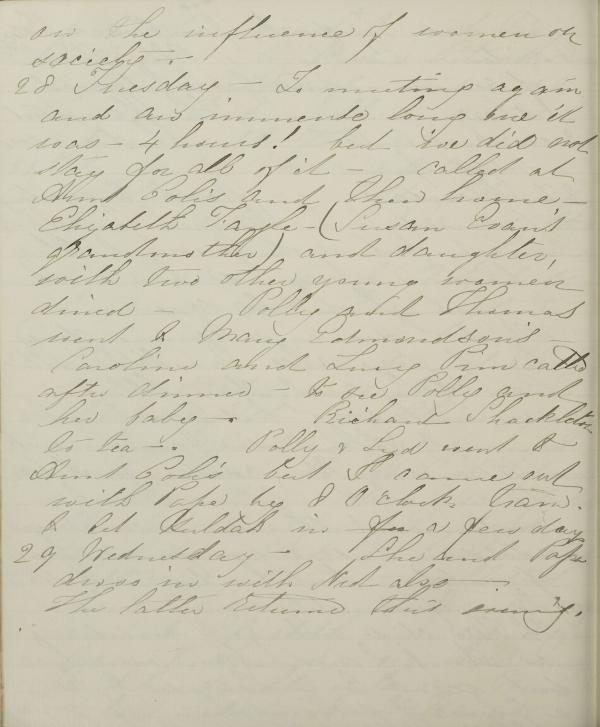 on the influence of women on
society -
28 Tuesday - To meeting again
and an immense long one it
was - 4 hours! but we did not
stay for all of it - called at
Aunt Eolis and then home -
Elizabeth Fayle - (Susan Evan's
grandmother) and daughter,
with two other young women
dined - Polly and Thomas
went to Mary Edmondson's -
Caroline and Lucy Pim called
after dinner - to see Polly and
her baby - Richard Shackleton
to tea - Polly & Lyd went to
Aunt Eoli's but I came out
with Papa by 8 O'clock train.
& let Huldah in for a few days
29 Wednesday - She and Papa
drove in with Ned also -
The latter returned this evening.